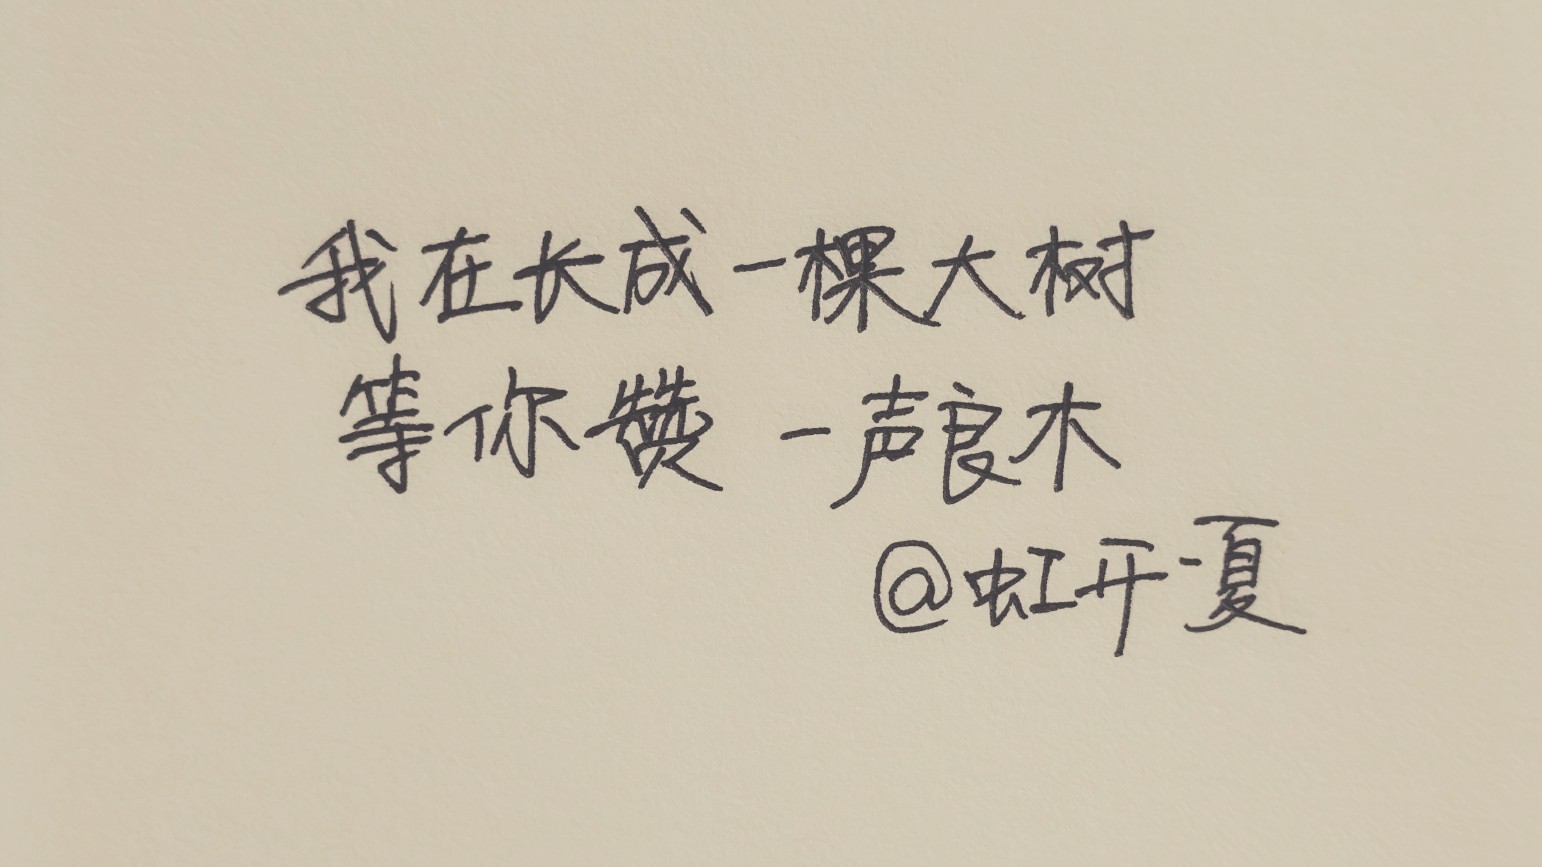 我在长成一棵大树
等你赞一声良木
@虹开一夏